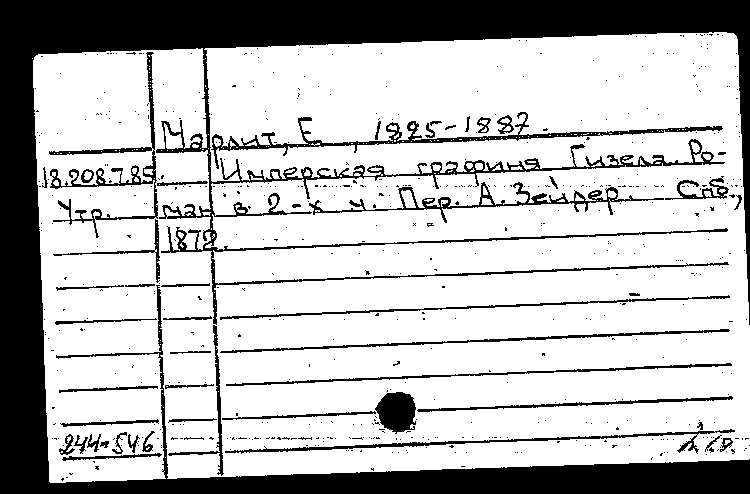 Марлит, Е , 1825-1887.
18.208.7.85. Имперская графиня Гизела. Ро-
Утр. ман в 2-х ч. Пер. А. Зейдер. Спб.,
1872.
244-546